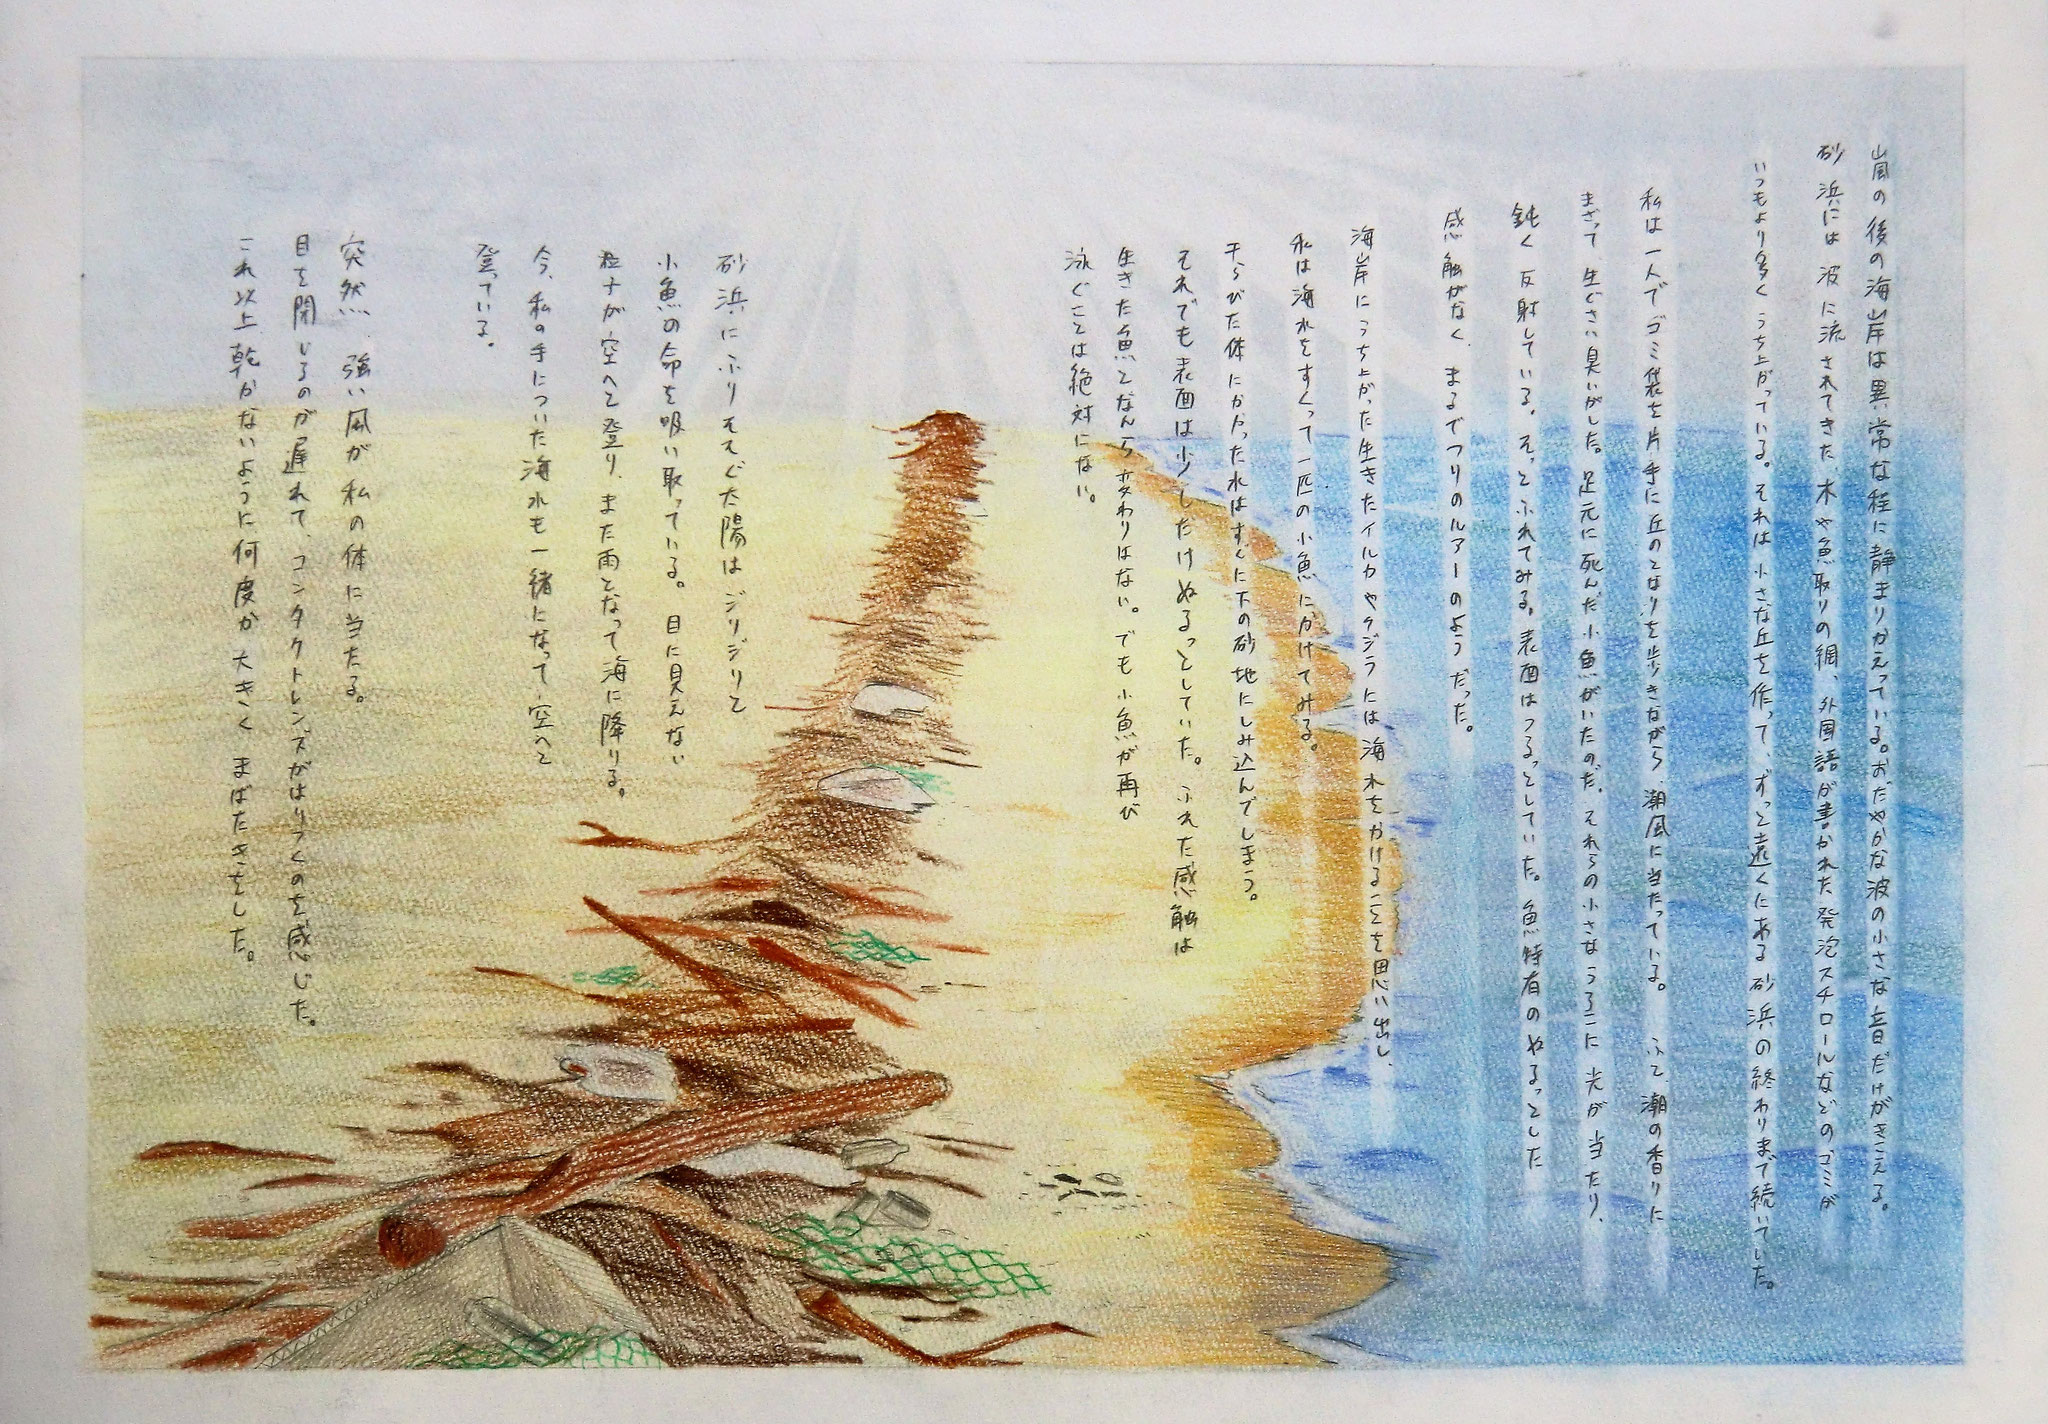 嵐の後の海岸は異常な程に静まりかえっている。おだやかな波の小さな音だけがきこえる。
砂浜には波に流されてきた木や魚取りの網、外国語が書かれた発泡スチロールなどのゴミが
いつもより多くうち上がっている。それは小さな丘を作って、ずっと遠くにある砂浜の終わりまで続いていた。
私は一人でゴミ袋を片手に丘のとなりを歩きながら、潮風に当たっている。ふと、潮の香りに
まざって、生ぐさい臭いがした。足元に死んだ小魚がいたのだ。それらの小さなうろこに光が当たり、
鈍く反射している。そっとふれてみる。表面はつるっとしていた。魚特有のぬるっとした
感触がなく、まるでつりのルアーのようだった。
海岸にうち上がった生きたイルカやクジラには海水をかけることを思い出し、
私は海水をすくって一匹の小魚にかけてみる。
干らびた体にかかった水はすぐに下の砂地にしみ込んでしまう。
それでも表面は少しだけぬるっとしていた。ふれた感触は
生きた魚となんら変わりはない。でも小魚が再び
泳ぐことは絶対にない。
砂浜にふりそそぐ太陽はジリジリと
小魚の命を吸い取っている。目に見えない
粒子が空へと登り、また雨となって海に降りる。
今、私の手についた海水も一緒になって、空へと
登っている。
突然、強い風が私の体に当たる。
目を閉じるのが遅れて、コンタクトレンズがはりつくのを感じた。
これ以上乾かないように何度か大きくまばたきをした。